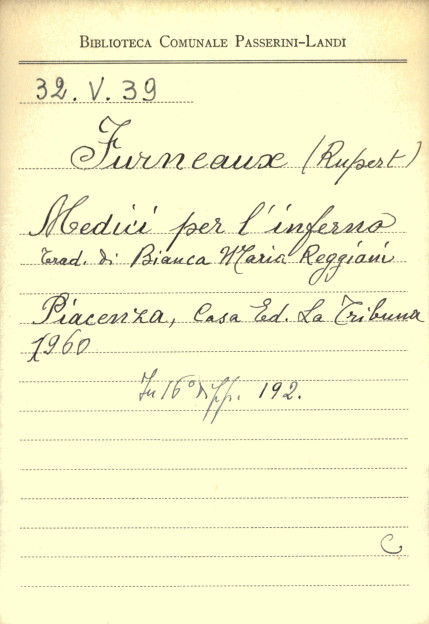 BIBLIOTECA COMUNALE PASSERINI-LANDI
32. V. 39
Furneaux (Rupert)
Medici per l'inferno
Trad. di Bianca Maria Reggiani
Piacenza, Casa Ed. La Tribuna
1960
In 16° di pp. 192.
C